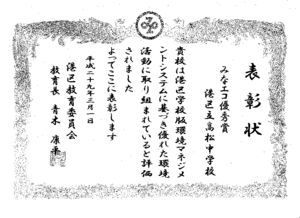 表彰状
みなエコ優秀賞
港区立高松中学校
貴校は港区学校版環境マネジメ
ントシステムに基づき優れた環境
活動に取り組まれていると評価
されました
よってここに表彰します
平成二十九年三月一日
港区教育委員会
教育長 青木 康平